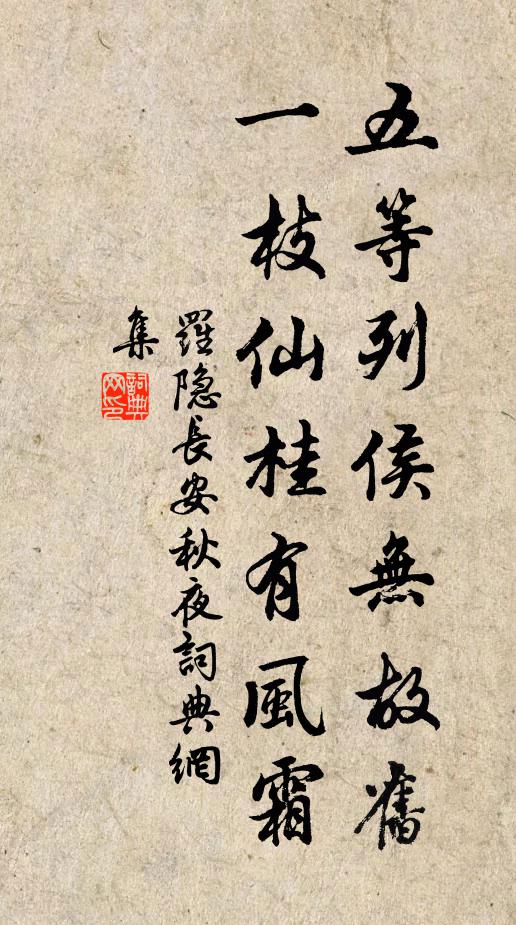 五等列侯無故舊
一枝仙桂有風霜
羅隐長安秋夜詞典網
集
詞典
网印